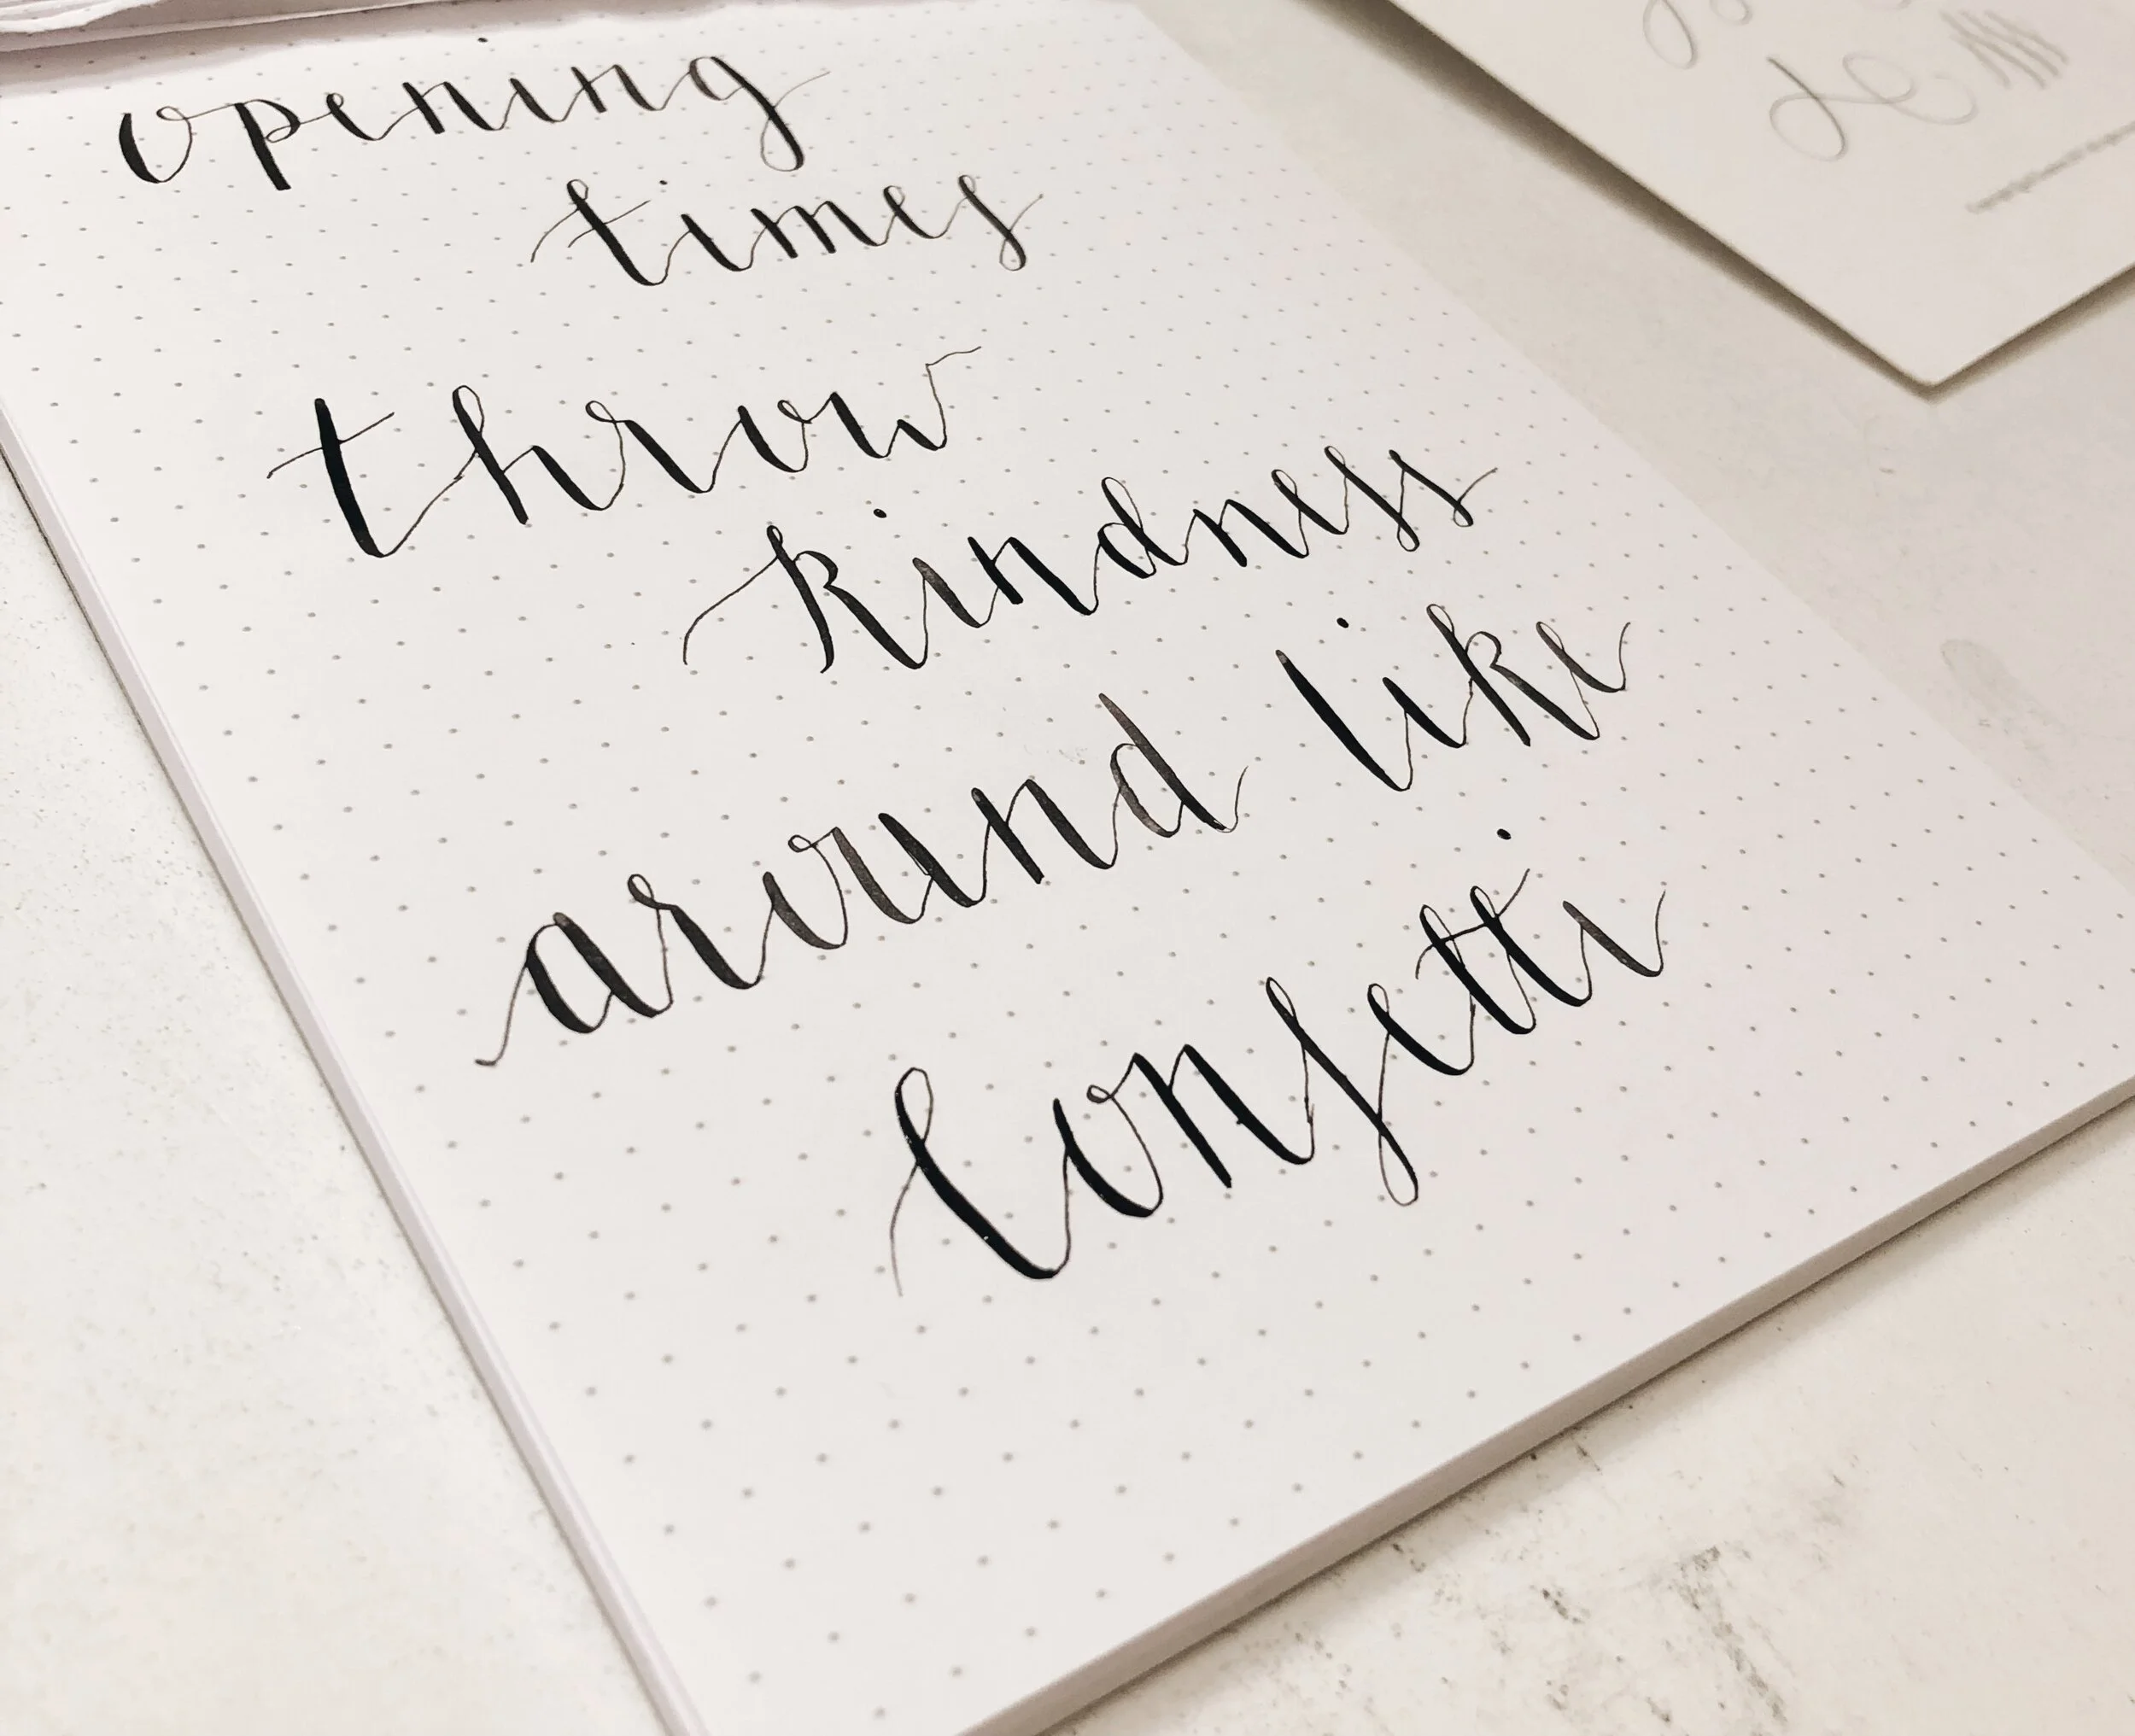 opening
times
throw
kindness
around like
confetti